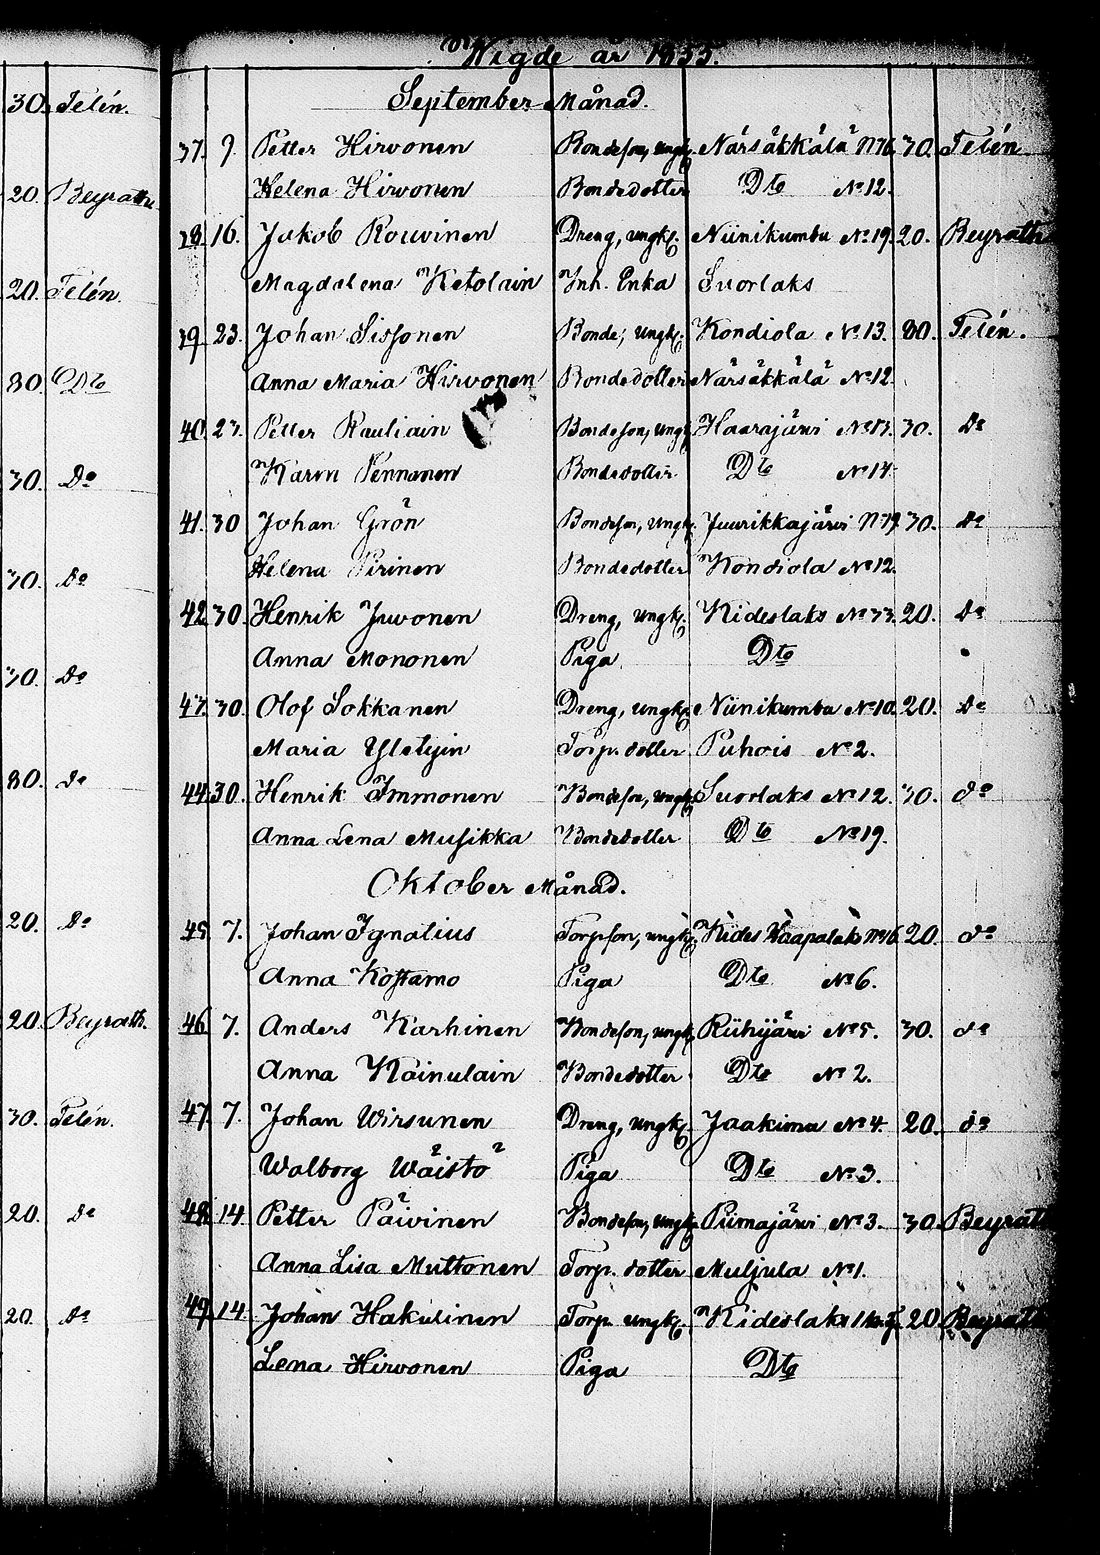 Wigde år 1855.
September Månad.
30. Telén.
37. 9. Petter Hirvonen Bondeson, ungk. Närsäkkälä N:o 16. 30. Telén
20. Beyrath Helena Hirvonen Bondedotter Dto N:o 12.
38. 16. Jakob Rouvinen Dreng, ungk. Niinikumbu N:o 19. 20. Beyrath
20. Telén. Magdalena Ketolain Inh. Enka Suorlaks
39. 23. Johan Sissonen Bonde, ungk. Kondiola N:o 13. 80. Telén.
80. Dto Anna Maria Hirvonen Bondedotter Närsäkkälä N:o 12
40. 23. Petter Rauliain Bondeson, ungk. Haarajärvi N:o 13. 30. Do
30. Do Karin Pennanen Bondedotter Dto N:o 14.
41. 30 Johan Grön Bondeson, ungk. Juurikkajärvi N:o 19. 30. Do
30. Do Helena Pirinen Bondedotter Kondiola N:o 12.
42. 30. Henrik Juvonen Dreng, ungk. Kideslaks N:o 33. 20. Do
30. Do Anna Mononen Piga Dto
43. 30. Olof Sokkanen Dreng, ungk. Niinikumbu N:o 10. 20. Do
80. Do Maria Yletyin Torp. dotter Puhois N:o 2.
44. 30. Henrik Immonen Bondeson, ungk. Suorlaks N:o 12. 30. do
Anna Lena Musikka Bondedotter Dto N:o 19.
Oktober Månad.
20. Do 45. 7. Johan Ignatius Torpson, ungk. Kides Haapalaks N:o 16. 20. do
Anna Kostamo Piga Dto N:o 6.
20. Beyrath. 46. 7. Anders Karhinen Bondeson, ungk. Riihijärvi N:o 5. 30. do
Anna Kainulain Bondedotter Dto N:o 2.
30. Telén. 47. 7. Johan Wirsunen Dreng, ungk. Jaakima N:o 4. 20. do
Walborg Wäistö Piga Dto N:o 3.
20. Do 48. 14. Petter Päivinen Bondeson, ungk. Piimajärvi N:o 3. 30. Beyrath
Anna Lisa Muttonen Torp. dotter Muljula N:o 1.
20. Do 49. 14. Johan Hakulinen Torp. ungk. Kideslaks 20. Beyrath
Lena Hirvonen Piga Dto